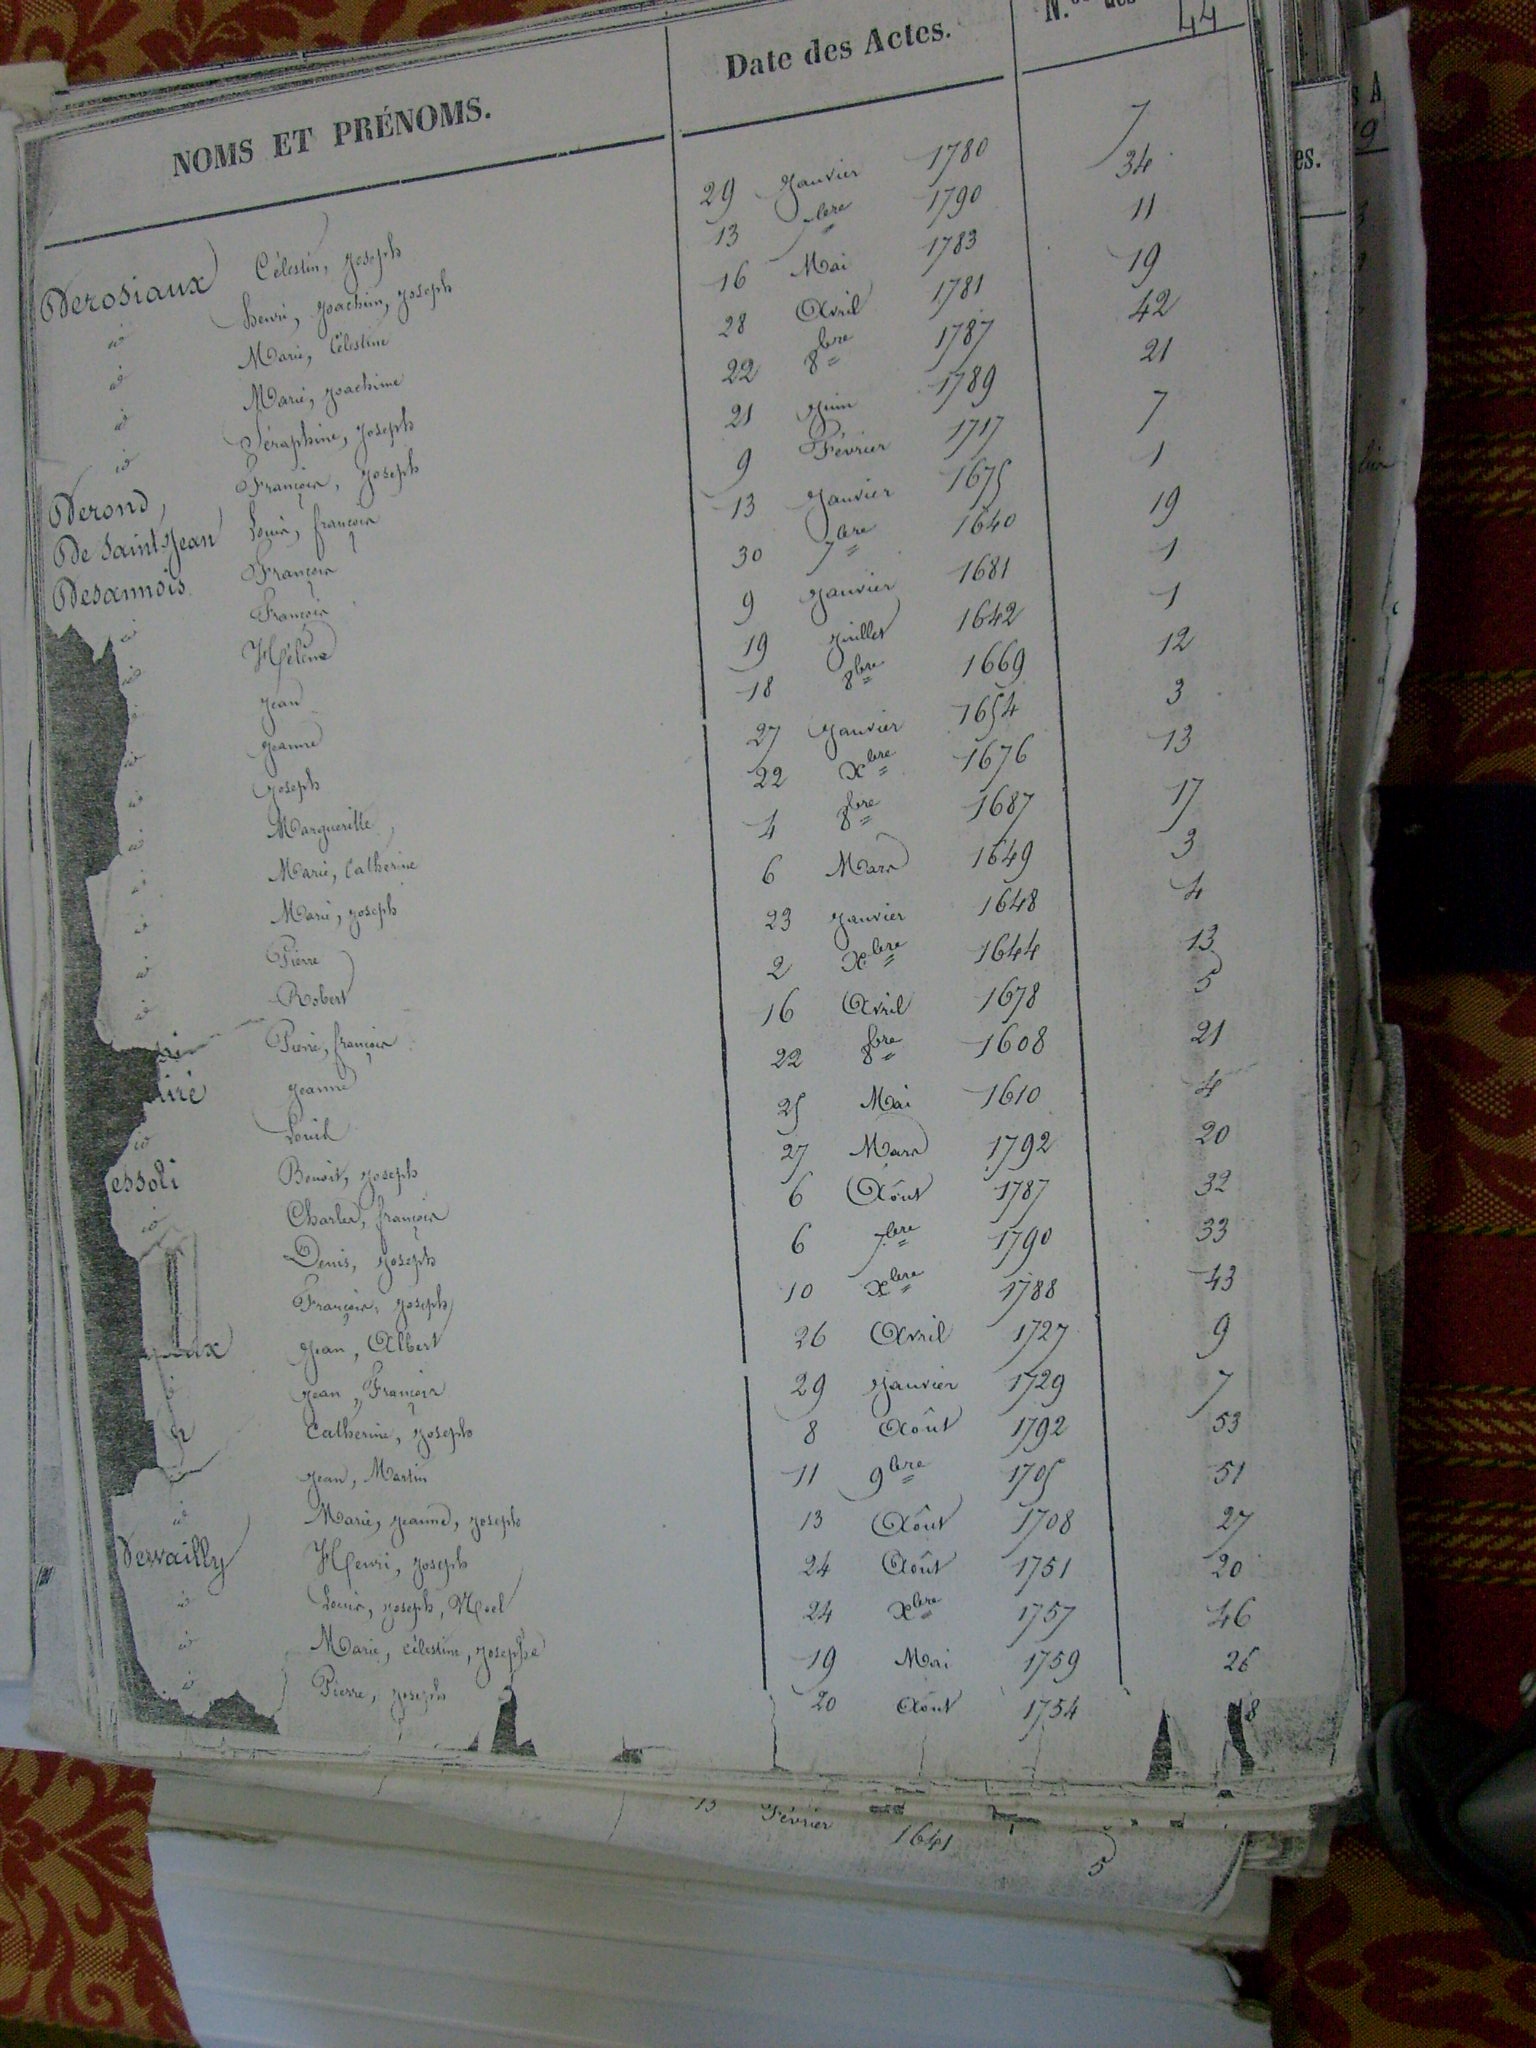 NOMS ET PRÉNOMS. Date des Actes. N.os des 44
Derosiaux Célestin, Joseph 29 Janvier 1780 7
id Henri, Joachim, Joseph 13 7bre 1790 34
id Marie, Célestine 16 Mai 1783 11
id Marie, Joachime 28 Avril 1781 19
id Séraphine, Joseph 22 8bre 1787 42
Derond, François, Joseph 21 Juin 1789 21
De Saint Jean Louis, françois 9 Février 1717 7
Desannois François 13 Janvier 1675 1
id François 30 7bre 1640 19
id Hélène 9 Janvier 1681 1
id Jean 19 Juillet 1642 1
id Jeanne 18 8bre 1669 12
id Joseph 27 Janvier 1654 3
id Marguerille 22 Xbre 1676 13
id Marie, Catherine 4 8bre 1687 17
id Marie, Joseph 6 Mars 1649 3
id Pierre 23 Janvier 1648 4
id Robert 2 Xbre 1644 13
Pierre, françois 16 Avril 1678 5
iré Jeanne 22 8bre 1608 21
id Louis 25 Mai 1610 4
essoli Benoit, Joseph 27 Mars 1792 20
id Charles, françois 6 Août 1787 32
Denis, Joseph 6 7bre 1790 33
François, Joseph 10 Xbre 1788 43
ux Jean, Albert 26 Avril 1727 9
Jean, François 29 Janvier 1729 7
Catherine, Joseph 8 Août 1792 53
Jean, Martin 11 9bre 1705 51
id Marie, Jeanne, Joseph 13 Août 1708 27
Dewailly Henri, Joseph 24 Août 1751 20
id Louis, Joseph, Noel 24 Xbre 1757 46
id Marie, célestine, Josephe 19 Mai 1759 26
id Pierre, Joseph 20 Août 1754 8
13 Février 1641 5